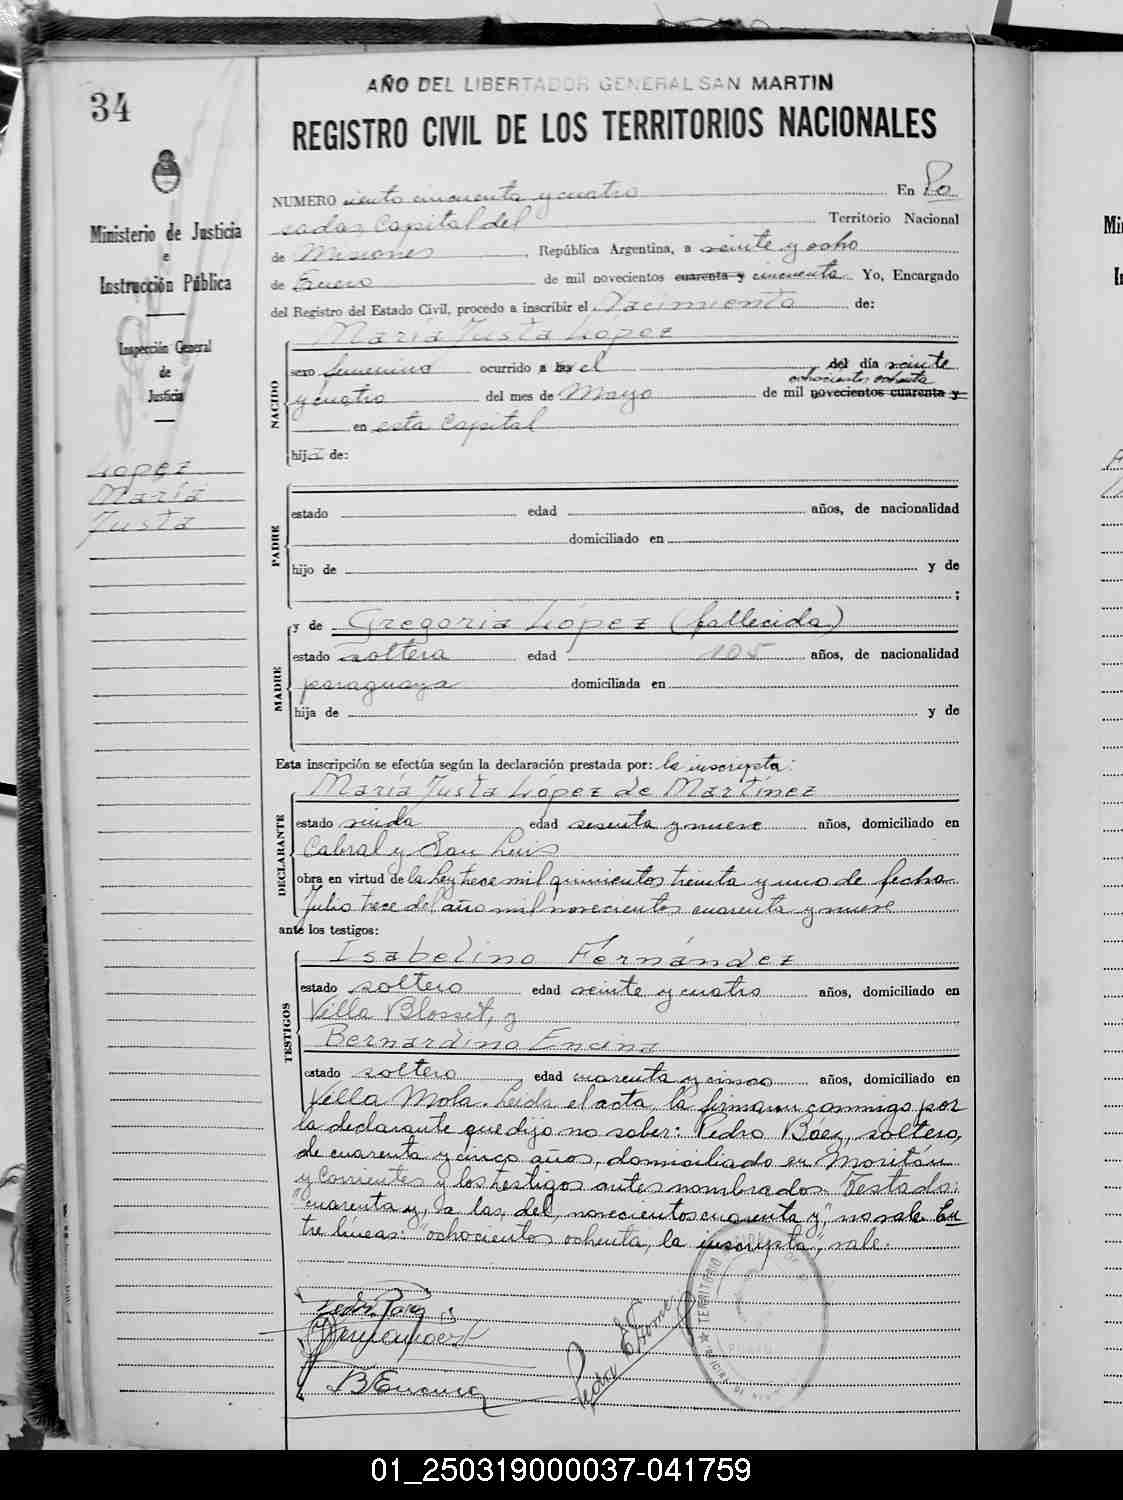 34
AÑO DEL LIBERTADOR GENERAL SAN MARTIN
REGISTRO CIVIL DE LOS TERRITORIOS NACIONALES
Ministerio de Justicia
e
Instrucción Pública
Inspección General
de
Justicia
López
María
Justa
NUMERO ciento cincuenta y cuatro En Po
sadas, Capital del Territorio Nacional
de Misiones, República Argentina, a veinte y ocho
de Enero de mil novecientos cuarenta y cincuenta Yo, Encargado
del Registro del Estado Civil, procedo a inscribir el Nacimiento de:
María Justa López
NACIDO
sexo femenino ocurrido a las el del día veinte
ochocientos ochenta
y cuatro del mes de Mayo de mil novecientos cuarenta y
en esta Capital
hija de:
PADRE
estado edad años, de nacionalidad
domiciliado en
hijo de y de
;
y de Gregoria López (fallecida)
MADRE
estado soltera edad 105 años, de nacionalidad
paraguaya domiciliada en
hija de y de
Esta inscripción se efectúa según la declaración prestada por: la inscripta:
María Justa López de Martínez
DECLARANTE
estado viuda edad sesenta y nueve años, domiciliado en
Cabral y San Luis
obra en virtud de la Ley trece mil quinientos treinta y uno de fecha
Julio trece del año mil novecientos cuarenta y nueve
ante los testigos:
Isabelino Fernández
TESTIGOS
estado soltero edad veinte y cuatro años, domiciliado en
Villa Blosset, y
Bernardino Encina
estado soltero edad cuarenta y cinco años, domiciliado en
Villa Mola. Leida el acta, la firman conmigo por
la declarante que dijo no saber: Pedro Báez, soltero,
de cuarenta y cinco años, domiciliado en Moritán
y Corrientes y los testigos antes nombrados. Testado:
"cuarenta y, a las, del, novecientos cuarenta y", no vale. En
tre líneas: "ochocientos ochenta, la inscripta", vale.
B Encina
TERRITORIO
01_250319000037-041759